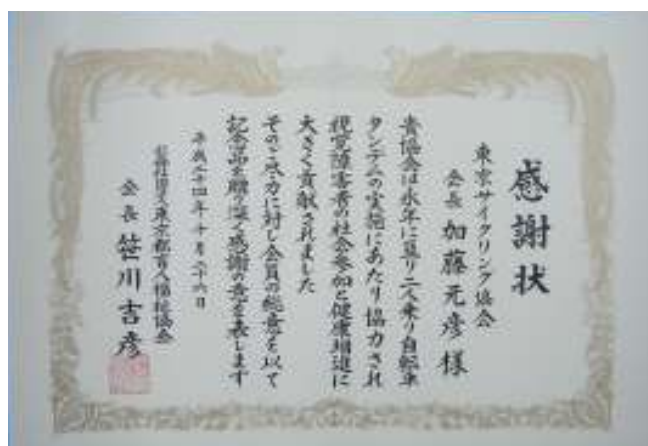 感謝状
東京サイクリング協会
会長 加藤元彦様
貴協会は永年に亘り二人乗り自転車
タンデムの実施にあたり協力され
視覚障害者の社会参加と健康増進に
大きく貢献されました
そのご尽力に対し会員の総意を以て
記念品を贈り深く感謝の意を表します
平成二十四年十月二十六日
公益社団法人東京都盲人福祉協会
会長 笹川吉彦